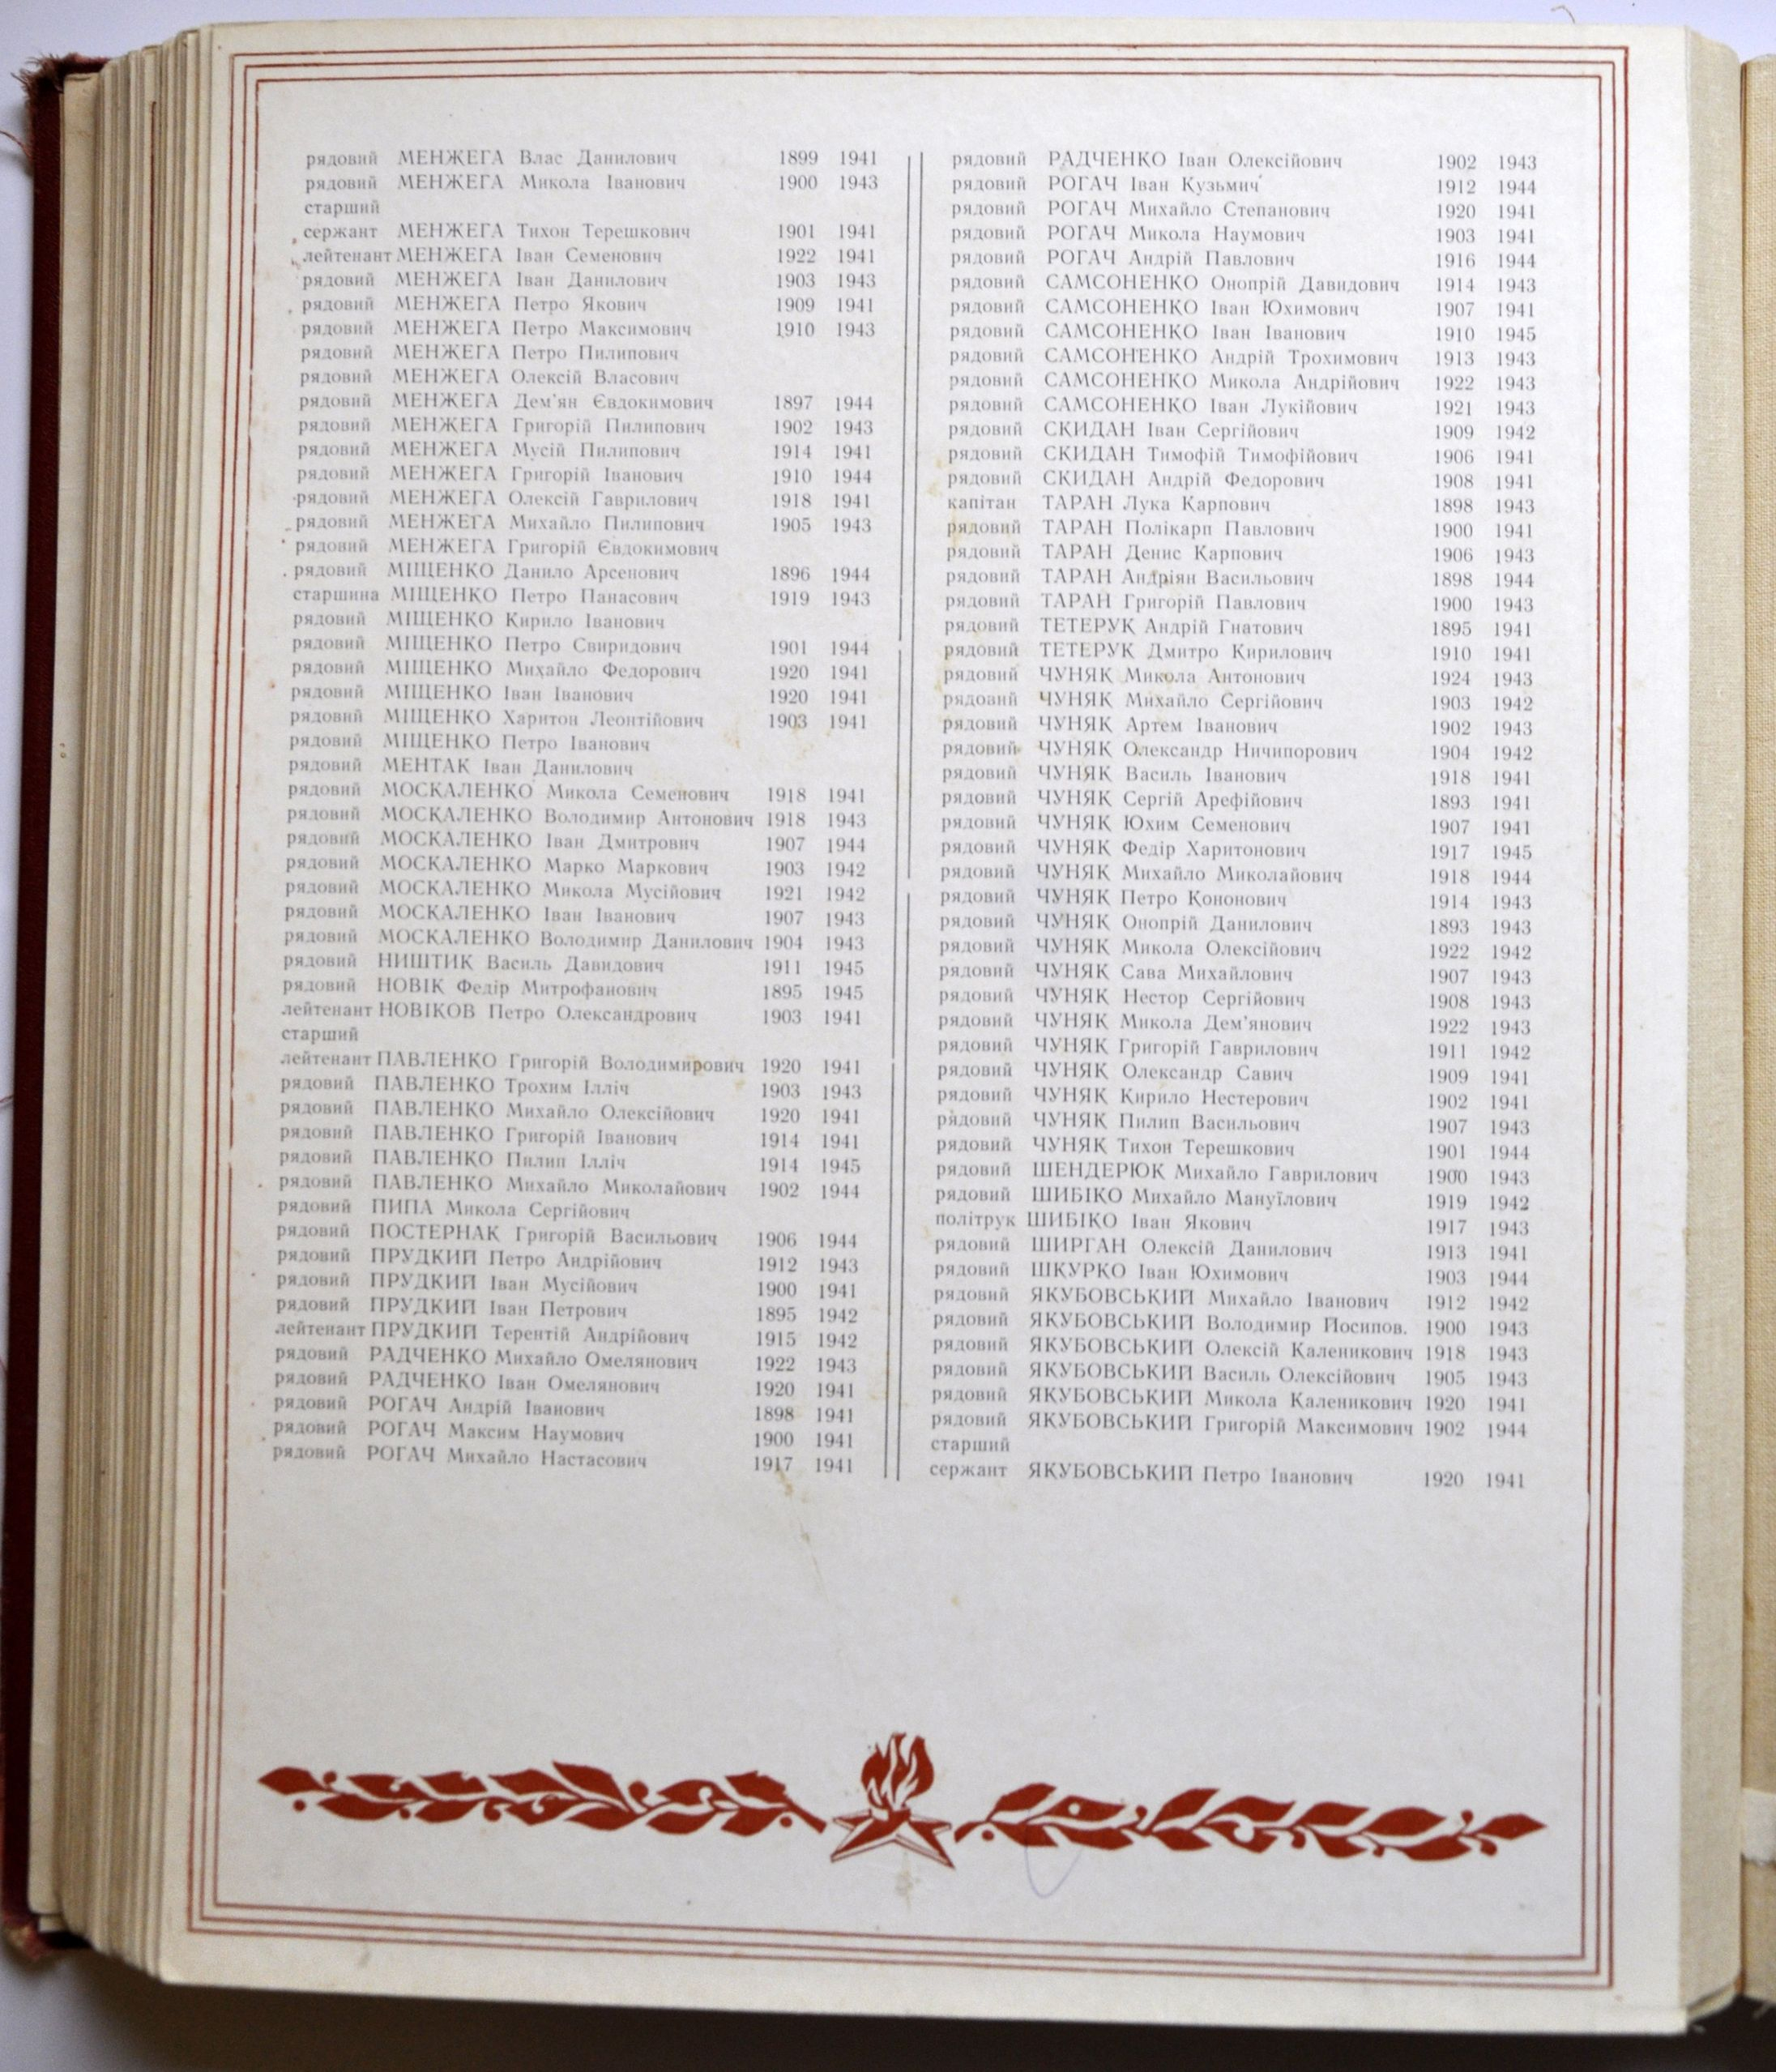 рядовий МЕНЖЕГА Влас Данилович 1899 1941
рядовий МЕНЖЕГА Микола Іванович 1900 1943
старший
сержант МЕНЖЕГА Тихон Терешкович 1901 1941
лейтенант МЕНЖЕГА Іван Семенович 1922 1941
рядовий МЕНЖЕГА Іван Данилович 1903 1943
рядовий МЕНЖЕГА Петро Якович 1909 1941
рядовий МЕНЖЕГА Петро Максимович 1910 1943
рядовий МЕНЖЕГА Петро Пилипович
рядовий МЕНЖЕГА Олексій Власович
рядовий МЕНЖЕГА Дем'ян Євдокимович 1897 1944
рядовий МЕНЖЕГА Григорій Пилипович 1902 1943
рядовий МЕНЖЕГА Мусій Пилипович 1914 1941
рядовий МЕНЖЕГА Григорій Іванович 1910 1944
рядовий МЕНЖЕГА Олексій Гаврилович 1918 1941
рядовий МЕНЖЕГА Михайло Пилипович 1905 1943
рядовий МЕНЖЕГА Григорій Євдокимович
рядовий МІЩЕНКО Данило Арсенович 1896 1944
старшина МІЩЕНКО Петро Панасович 1919 1943
рядовий МІЩЕНКО Кирило Іванович
рядовий МІЩЕНКО Петро Свиридович 1901 1944
рядовий МІЩЕНКО Михайло Федорович 1920 1941
рядовий МІЩЕНКО Іван Іванович 1920 1941
рядовий МІЩЕНКО Харитон Леонтійович 1903 1941
рядовий МІЩЕНКО Петро Іванович
рядовий МЕНТАК Іван Данилович
рядовий МОСКАЛЕНКО Микола Семенович 1918 1941
рядовий МОСКАЛЕНКО Володимир Антонович 1918 1943
рядовий МОСКАЛЕНКО Іван Дмитрович 1907 1944
рядовий МОСКАЛЕНКО Марко Маркович 1903 1942
рядовий МОСКАЛЕНКО Микола Мусійович 1921 1942
рядовий МОСКАЛЕНКО Іван Іванович 1907 1943
рядовий МОСКАЛЕНКО Володимир Данилович 1904 1943
рядовий НИШТИК Василь Давидович 1911 1945
рядовий НОВІК Федір Митрофанович 1895 1945
лейтенант НОВІКОВ Петро Олександрович 1903 1941
старший
лейтенант ПАВЛЕНКО Григорій Володимирович 1920 1941
рядовий ПАВЛЕНКО Трохим Ілліч 1903 1943
рядовий ПАВЛЕНКО Михайло Олексійович 1920 1941
рядовий ПАВЛЕНКО Григорій Іванович 1914 1941
рядовий ПАВЛЕНКО Пилип Ілліч 1914 1945
рядовий ПАВЛЕНКО Михайло Миколайович 1902 1944
рядовий ПИПА Микола Сергійович
рядовий ПОСТЕРНАК Григорій Васильович 1906 1944
рядовий ПРУДКИЙ Петро Андрійович 1912 1943
рядовий ПРУДКИЙ Іван Мусійович 1900 1941
рядовий ПРУДКИЙ Іван Петрович 1895 1942
лейтенант ПРУДКИЙ Терентій Андрійович 1915 1942
рядовий РАДЧЕНКО Михайло Омелянович 1922 1943
рядовий РАДЧЕНКО Іван Омелянович 1920 1941
рядовий РОГАЧ Андрій Іванович 1898 1941
рядовий РОГАЧ Максим Наумович 1900 1941
рядовий РОГАЧ Михайло Настасович 1917 1941
рядовий РАДЧЕНКО Іван Олексійович 1902 1943
рядовий РОГАЧ Іван Кузьмич 1912 1944
рядовий РОГАЧ Михайло Степанович 1920 1941
рядовий РОГАЧ Микола Наумович 1903 1941
рядовий РОГАЧ Андрій Павлович 1916 1944
рядовий САМСОНЕНКО Онопрій Давидович 1914 1943
рядовий САМСОНЕНКО Іван Юхимович 1907 1941
рядовий САМСОНЕНКО Іван Іванович 1910 1945
рядовий САМСОНЕНКО Андрій Трохимович 1913 1943
рядовий САМСОНЕНКО Микола Андрійович 1922 1943
рядовий САМСОНЕНКО Іван Лукійович 1921 1943
рядовий СКИДАН Іван Сергійович 1909 1942
рядовий СКИДАН Тимофій Тимофійович 1906 1941
рядовий СКИДАН Андрій Федорович 1908 1941
капітан ТАРАН Лука Карпович 1898 1943
рядовий ТАРАН Полікарп Павлович 1900 1941
рядовий ТАРАН Денис Карпович 1906 1943
рядовий ТАРАН Андріян Васильович 1898 1944
рядовий ТАРАН Григорій Павлович 1900 1943
рядовий ТЕТЕРУК Андрій Гнатович 1895 1941
рядовий ТЕТЕРУК Дмитро Кирилович 1910 1941
рядовий ЧУНЯК Микола Антонович 1924 1943
рядовий ЧУНЯК Михайло Сергійович 1903 1942
рядовий ЧУНЯК Артем Іванович 1902 1943
рядовий ЧУНЯК Олександр Ничипорович 1904 1942
рядовий ЧУНЯК Василь Іванович 1918 1941
рядовий ЧУНЯК Сергій Арефійович 1893 1941
рядовий ЧУНЯК Юхим Семенович 1907 1941
рядовий ЧУНЯК Федір Харитонович 1917 1945
рядовий ЧУНЯК Михайло Миколайович 1918 1944
рядовий ЧУНЯК Петро Кононович 1914 1943
рядовий ЧУНЯК Онопрій Данилович 1893 1943
рядовий ЧУНЯК Микола Олексійович 1922 1942
рядовий ЧУНЯК Сава Михайлович 1907 1943
рядовий ЧУНЯК Нестор Сергійович 1908 1943
рядовий ЧУНЯК Микола Дем'янович 1922 1943
рядовий ЧУНЯК Григорій Гаврилович 1911 1942
рядовий ЧУНЯК Олександр Савич 1909 1941
рядовий ЧУНЯК Кирило Нестерович 1902 1941
рядовий ЧУНЯК Пилип Васильович 1907 1943
рядовий ЧУНЯК Тихон Терешкович 1901 1944
рядовий ШЕНДЕРЮК Михайло Гаврилович 1900 1943
рядовий ШИБІКО Михайло Мануїлович 1919 1942
політрук ШИБІКО Іван Якович 1917 1943
рядовий ШИРГАН Олексій Данилович 1913 1941
рядовий ШКУРКО Іван Юхимович 1903 1944
рядовий ЯКУБОВСЬКИЙ Михайло Іванович 1912 1942
рядовий ЯКУБОВСЬКИЙ Володимир Йосипов. 1900 1943
рядовий ЯКУБОВСЬКИЙ Олексій Каленикович 1918 1943
рядовий ЯКУБОВСЬКИЙ Василь Олексійович 1905 1943
рядовий ЯКУБОВСЬКИЙ Микола Каленикович 1920 1941
рядовий ЯКУБОВСЬКИЙ Григорій Максимович 1902 1944
старший
сержант ЯКУБОВСЬКИЙ Петро Іванович 1920 1941